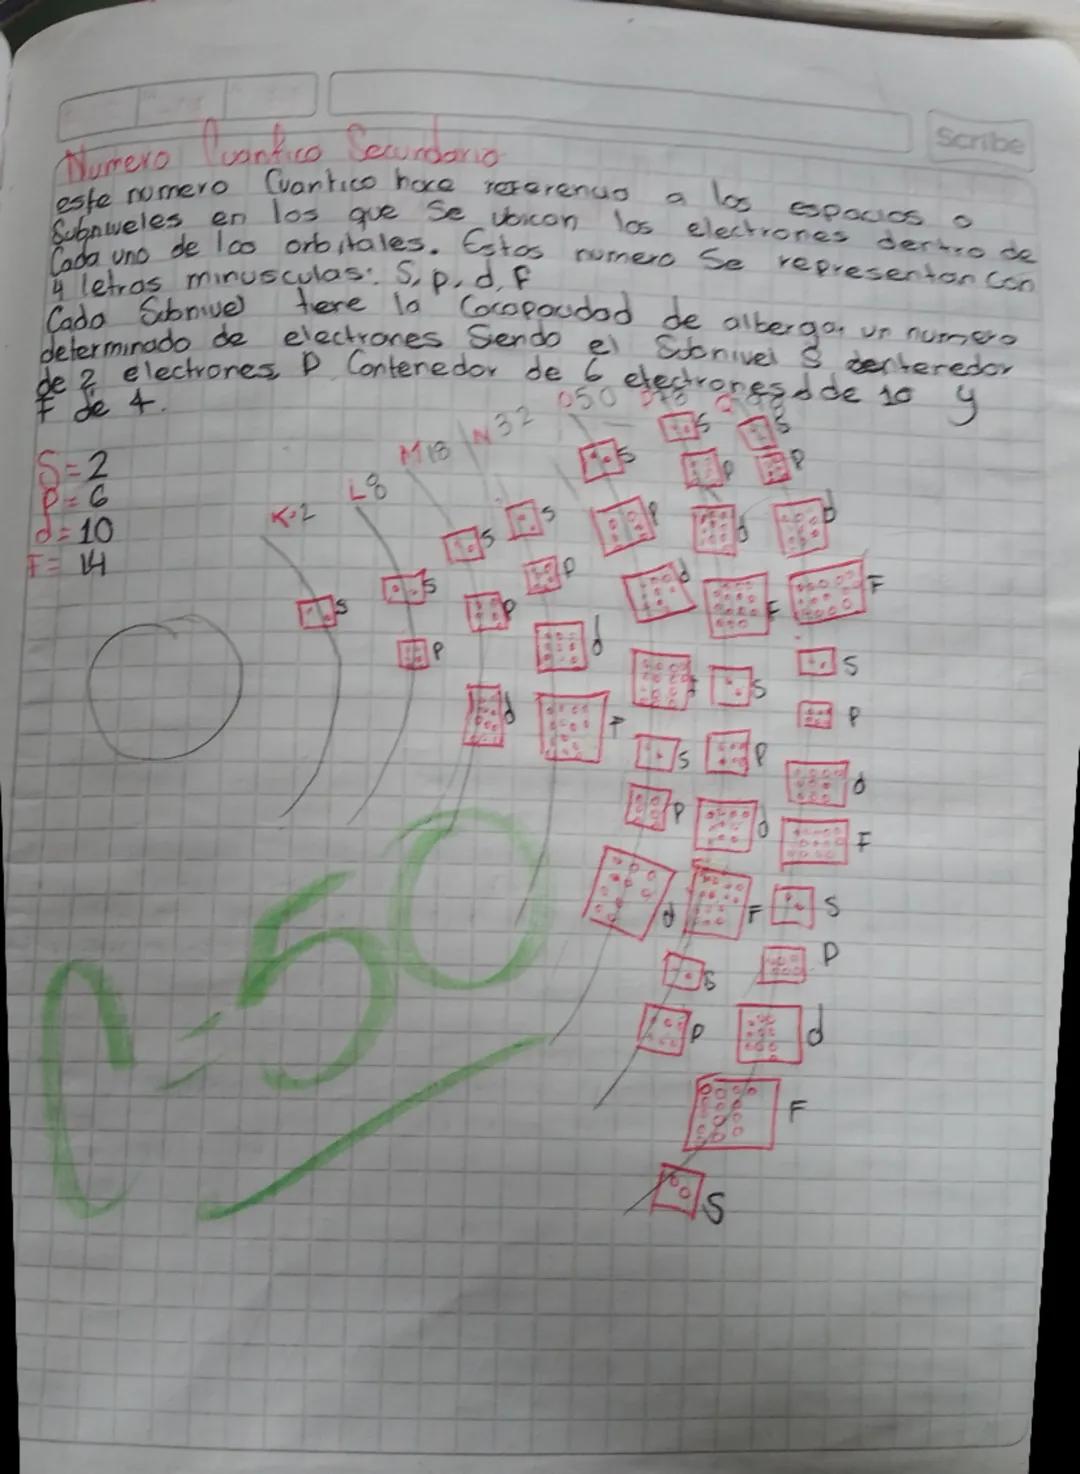 Scribe
Numero Cuantico Secundario
este numero Cuantico hace referencia a los espacios o
Subniveles en los que se ubican los electrones dentro de
Cada uno de los orbitales. Estos numero Se representan con
4 letras minusculas: S, p, d, f
Cada Subnivel tiene la Cacapacidad de albergar un numero
determinado de electrones Siendo el Subnivel S contenedor
de 2 electrones, P Contenedor de 6 electrones d de 10 y
F de 4.
S=2
P=6
d=10
F=14
K=2
L8
M18
N 32
O50
S
S
P
S
P
d
S
P
d
F
S
P
d
S
P
d
S
P
d
F
S
P
d
F
S
P
S
P
d
F
S
P
d
F
S
P
d
F
S
C=50